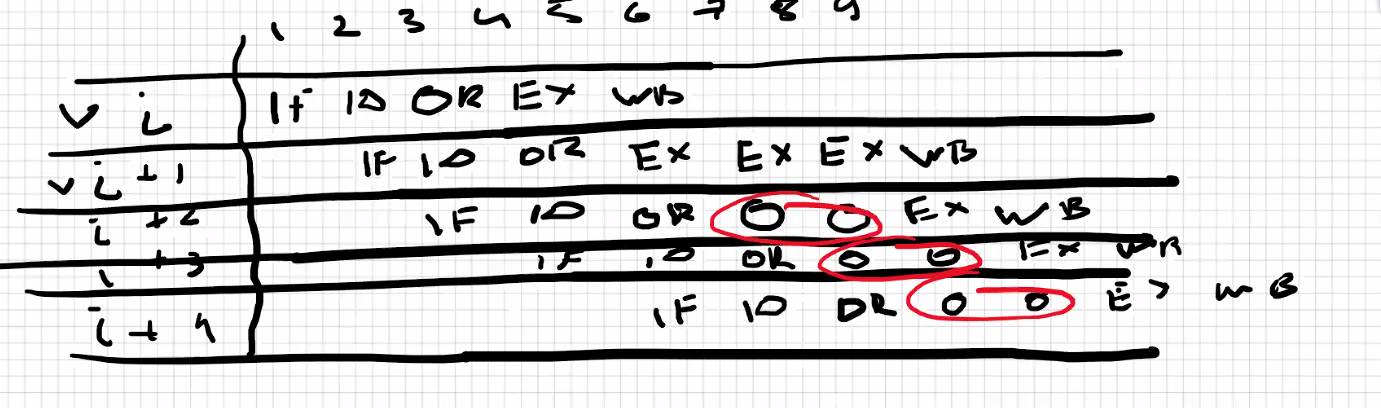 1 2 3 4 5 6 7 8 9
v i IF ID OR EX WB
v i + 1 IF ID OR EX EX EX WB
i + 2 IF ID OR O O EX WB
i + 3 IF ID OR O O EX WB
i + 4 IF ID OR O O EX WB